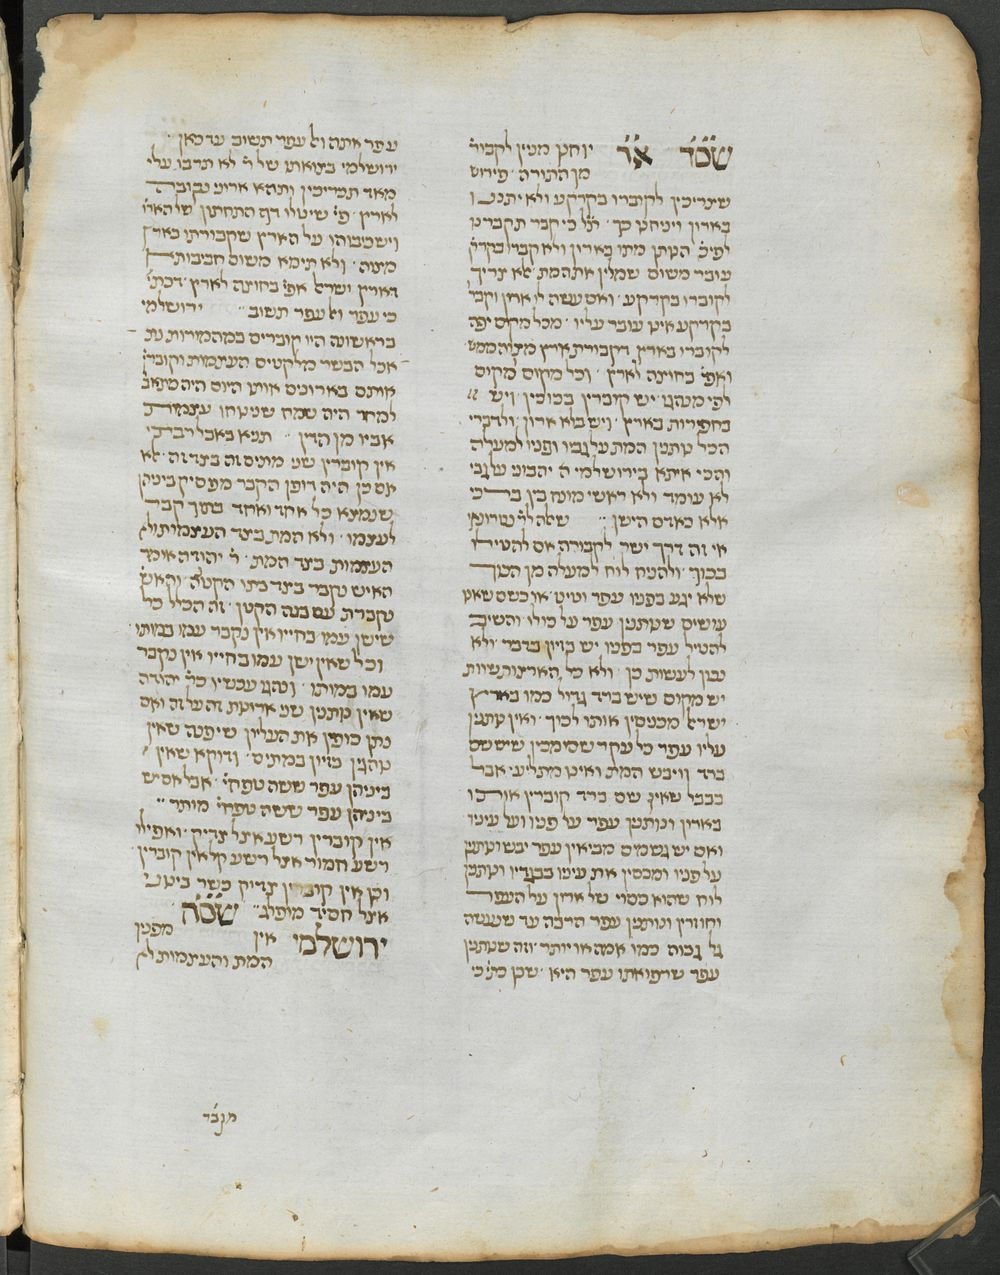 שסד א״ר יוחנן מנין לקבור׳
מן התורה · פירוש
שצריכין לקוברו בקרקע ולא יתננו
בארון ויניחנו כך · ת״ל כי קבר תקברנו
לפיכ׳ הנותן מתו בארון ולא קברו בקרק׳
עובר משום שמלין את המת · לא צריך
לקוברו בקרקע · ואם עשה לו ארון וקברו
בקרקע אינו עובר עליו · מכל מקום יפה
לקוברו בארץ דקבורת ארץ מצוה ממש
ואפי׳ בחוצה לארץ · וכל מקום ומקום
לפי מנהגו יש קוברין בכוכין · ויש
בחפירות בארץ · ויש בלא ארון · ולדברי
הכל נותנין המת על גבו ופניו למעלה
והכי איתא בירושלמי יהבונו על גבי
לא עומד ולא ראשי מונח בין ברכי
אלא כאדם הישן ·· שאלה לר׳
אי זה דרך ישר לקבורה אם להטילו
בכוך · ולהניח לוח למעלה מן הכוך
שלא יגע בפניו עפר וטיט · או כשם שאנו
עושים שנותנין עפר על כולו · והשיב
להטיל עפר בפניו יש בזיון בדבר · ולא
נכון לעשות כן · ולא כל הארצות שוות
יש מקום שיש ברד גדול כמו בארץ
ישראל מכניסין אותו לכוך · ואין נותנין
עליו עפר כל עקר שסומכין שיש שם
ברד ויבש המת ואינו מתליע · אבל
בבבל שאינו שם ברד קוברין אותו
בארון ונותנין עפר על פניו ועל עיניו
ואם יש גשמים מביאין עפר יבש ונותנין
על פניו ומכסין את עיניו בבגדיו ונותנין
לוח שהוא כסוי של ארון על העפר
וחוזרין ונותנין עפר הרבה עד שנעשה
גל גבוה כמו אמה או יותר · וזה שנותנין
עפר שרפואתו עפר היא · שכן כת׳ כי
עפר אתה ואל עפר תשוב עד כאן ··
ירושלמי בצואתו של ר׳ לא תרבו עלי
מאד תכריכין ותהא ארוני נקובה
לארץ · פי׳ שיטלו דף התחתון של הארו׳
וישכיבוהו על הארץ שקבורתו בארץ
מצוה · ולא תימא משום חביבות
דארץ ישראל אפי׳ בחוצה לארץ · דכתי׳
כי עפר ואל עפר תשוב ·· ירושלמי
בראשונה היו קוברים במהמורות
אכל הבשר מלקטים העצמות וקוברין
אותם בארונים אותו היום היה מתאבל
למחר היה שמח שנינוחו עצמות
אביו מן הדין ·· תניא באבל רבתי
אין קוברין שני מתים זה בצד זה · אלא
אם כן היה דופן הקבר מפסיק ביניהן
שנמצא כל אחד ואחד בתוך קבר
לעצמו · ולא המת בצד העצמות ולא
העצמות בצד המת · ר׳ יהודה אומר
האיש נקבר בצד בתו הקטנה · והאש׳
נקברת עם בנה הקטן · זה הכלל כל
שישן עמו בחייו אין נקבר עמו במותו
וכל שאין ישן עמו בחייו אין נקבר
עמו במותו · ונהגו עכשיו כר׳ יהודה
שאין נותנין שני ארונות זה על זה ואם
נתן כופין את העליון שיפנה שאין
נוהגין בזיון במתים · ודוקא שאין
ביניהן עפר ששה טפחי׳ · אבל אם יש
ביניהן עפר ששה טפחי׳ מותר ··
אין קוברין רשע אצל צדיק · ואפילו
רשע חמור אצל רשע קל אין קוברין
וכן אין קוברין צדיק כשר בינוני
אצל חסיד מופלג ·· שסה
ירושלמי אין מפנין
המת והעצמות לא
מנכד